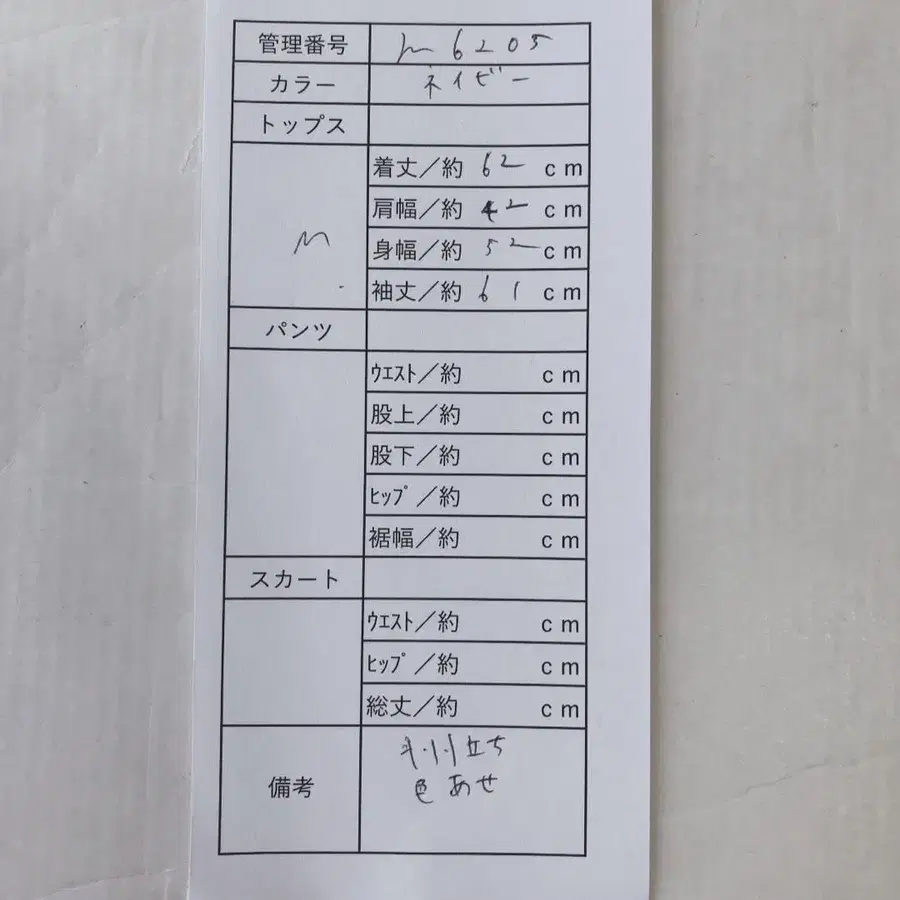 管理番号 m6205
カラー ネイビー
トップス
M
着丈／約 62 cm
肩幅／約 42 cm
身幅／約 52 cm
袖丈／約 61 cm
パンツ
ｳｴｽﾄ／約 cm
股上／約 cm
股下／約 cm
ﾋｯﾌﾟ／約 cm
裾幅／約 cm
スカート
ｳｴｽﾄ／約 cm
ﾋｯﾌﾟ／約 cm
総丈／約 cm
備考
立ち
色あせ